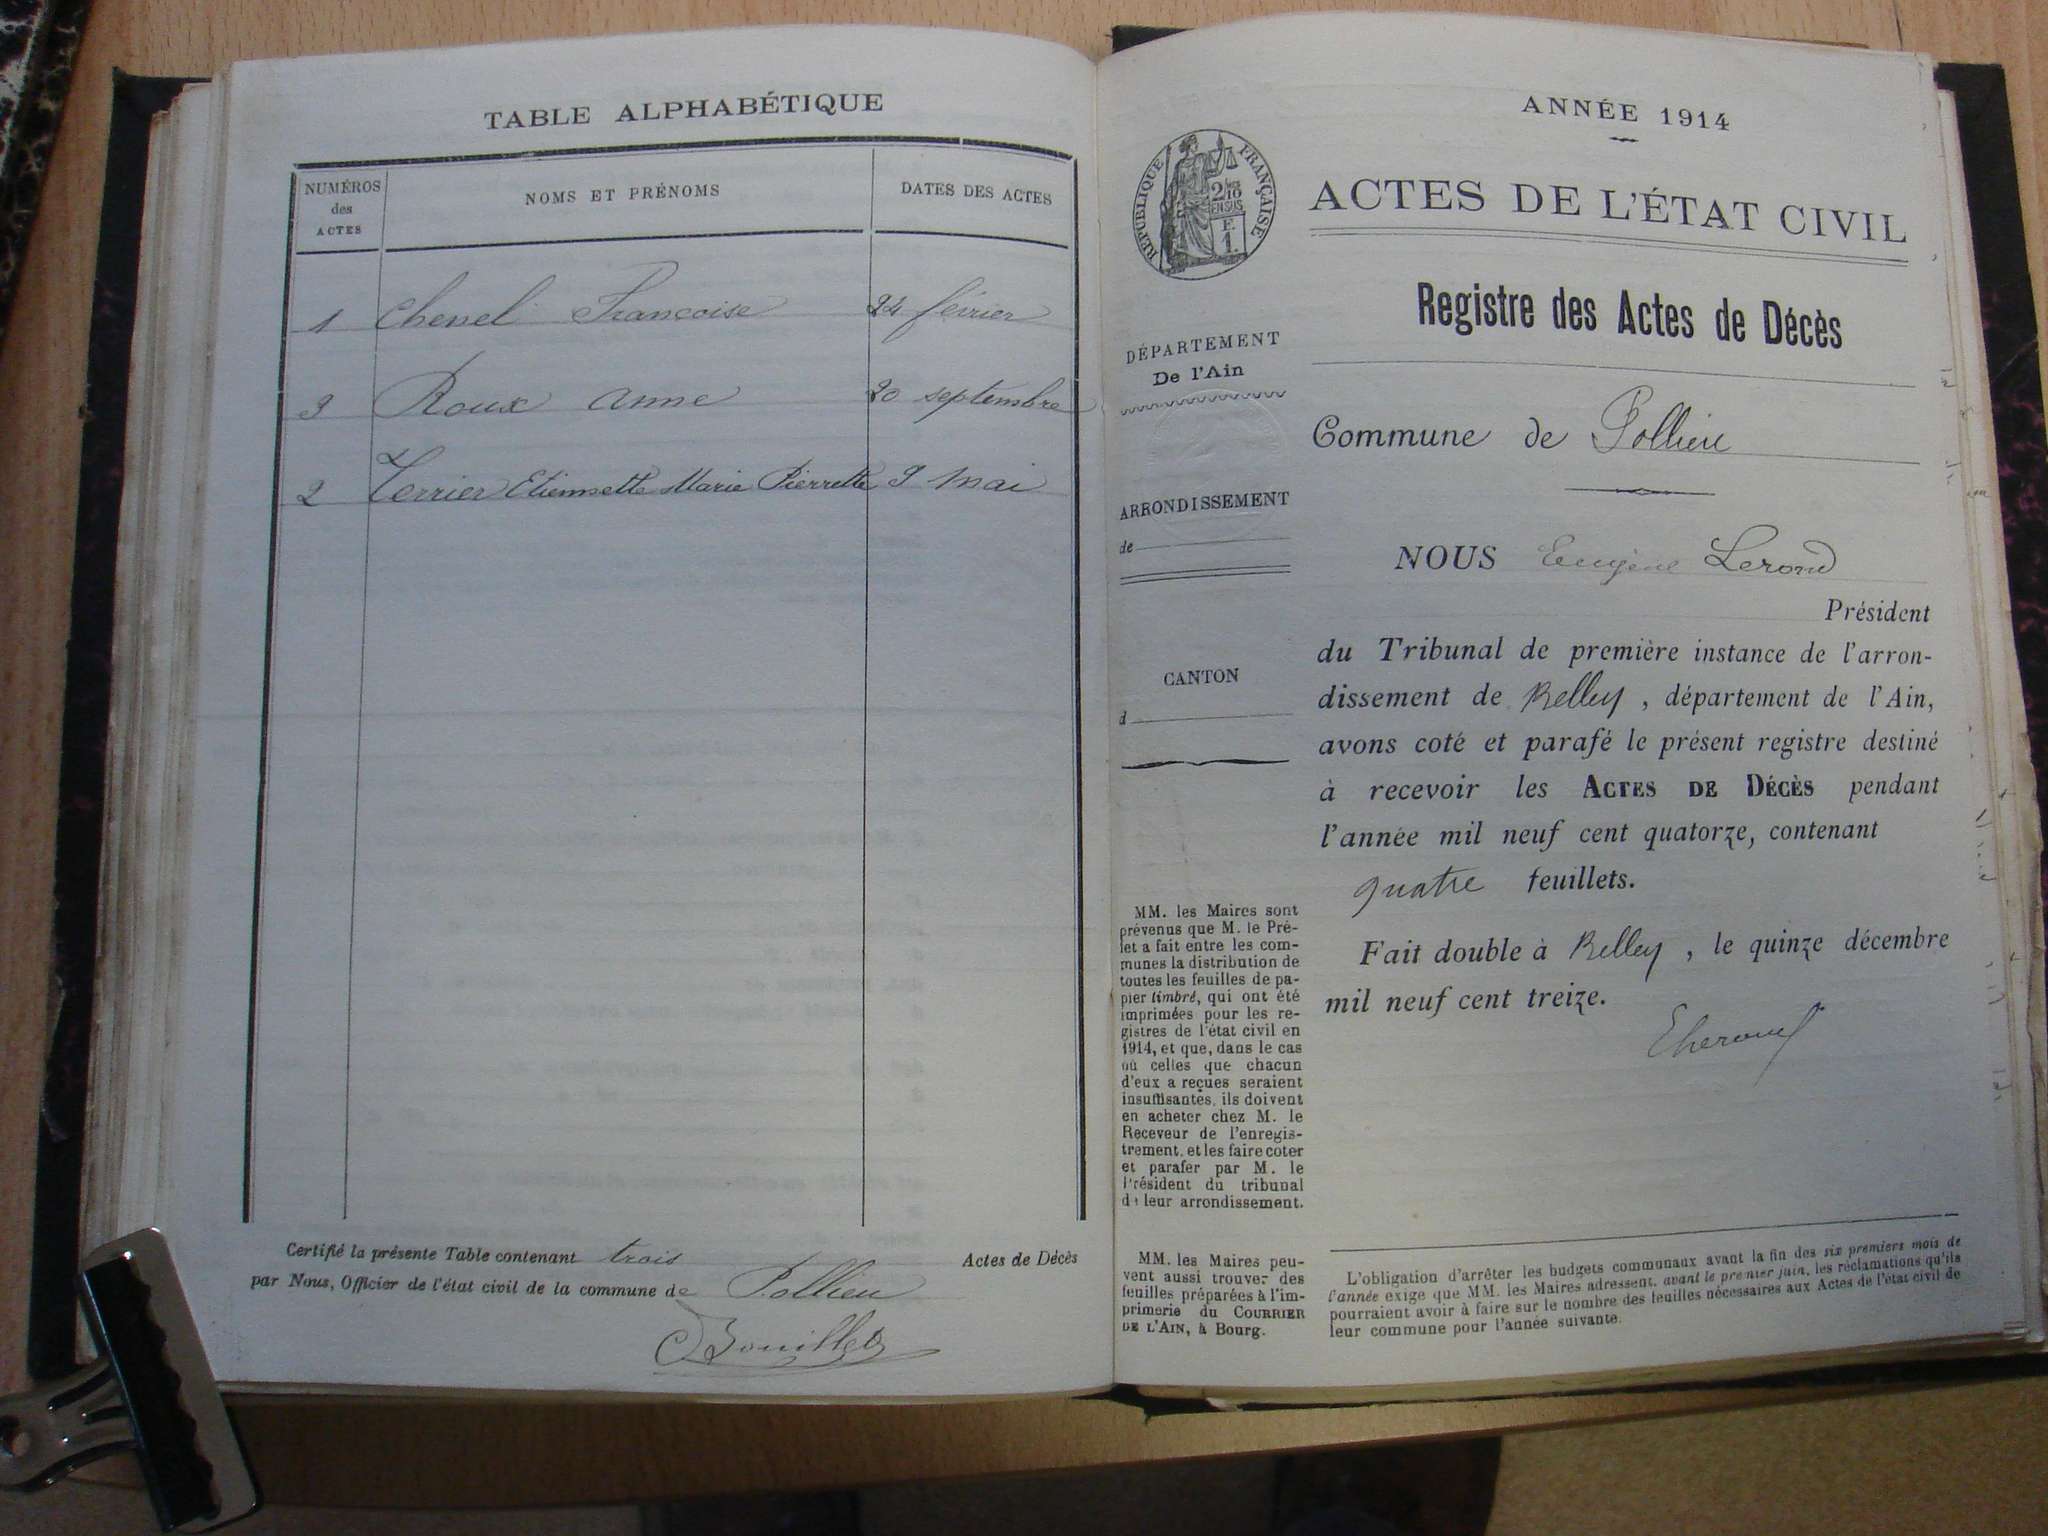 TABLE ALPHABÉTIQUE
NUMÉROS des ACTES
NOMS ET PRÉNOMS
DATES DES ACTES
1 Chenel Françoise 24 février
3 Roux Anne 20 septembre
2 Terrier Etiennette Marie Pierrette 9 mai
Certifié la présente Table contenant trois Actes de Décès
par Nous, Officier de l'état civil de la commune de Pollieu
Bouillet
ANNÉE 1914
RÉPUBLIQUE FRANÇAISE
2/10
EN SUS
E
1.
ACTES DE L'ÉTAT CIVIL
Registre des Actes de Décès
DÉPARTEMENT
De l'Ain
Commune de Pollieu
ARRONDISSEMENT
de
CANTON
d
NOUS Eugène Lerond
Président
du Tribunal de première instance de l'arron-
dissement de Belley, département de l'Ain,
avons coté et parafé le présent registre destiné
à recevoir les ACTES DE DÉCÈS pendant
l'année mil neuf cent quatorze, contenant
quatre feuillets.
Fait double à Belley, le quinze décembre
mil neuf cent treize.
MM. les Maires sont
prévenus que M. le Pré-
fet a fait entre les com-
munes la distribution de
toutes les feuilles de pa-
pier timbré, qui ont été
imprimées pour les re-
gistres de l'état civil en
1914, et que, dans le cas
où celles que chacun
d'eux a reçues seraient
insuffisantes, ils doivent
en acheter chez M. le
Receveur de l'enregis-
trement, et les faire coter
et parafer par M. le
Président du tribunal
de leur arrondissement.
MM. les Maires peu-
vent aussi trouver des
feuilles préparées à l'im-
primerie du COURRIER
DE L'AIN, à Bourg.
L'obligation d'arrêter les budgets communaux avant la fin des six premiers mois de
l'année exige que MM. les Maires adressent, avant le premier juin, les réclamations qu'ils
pourraient avoir à faire sur le nombre des feuilles nécessaires aux Actes de l'état civil de
leur commune pour l'année suivante.